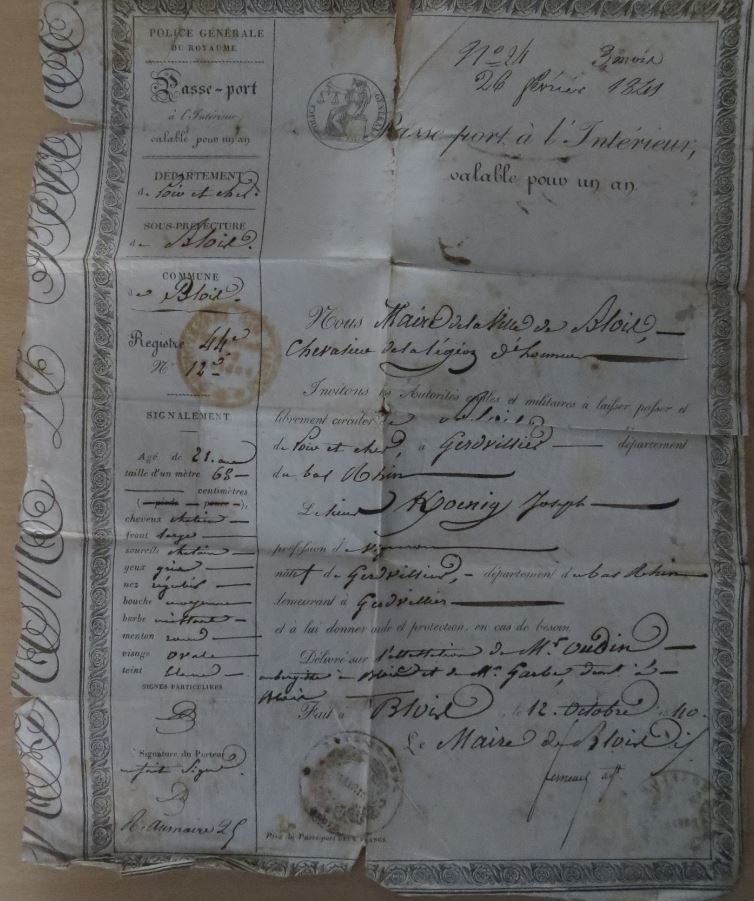 POLICE GÉNÉRALE
DU ROYAUME
Passe-port
à l'Intérieur
valable pour un an
DÉPARTEMENT
de Loir et cher
SOUS-PRÉFECTURE
de Blois.
COMMUNE
de Blois.
Registre 44e
No 12
SIGNALEMENT
Agé de 21 ans
taille d'un mètre 68
centimètres
(pieds pouces),
cheveux chatain
front large
sourcils chatain
yeux gris
nez régulier
bouche moyenne
barbe naissante
menton rond
visage ovale
teint
SIGNES PARTICULIERS
Signature du Porteur
R. Aumaire 25
POLICE GÉNÉRALE
No 24 3 mois
26 février 1841
Passe-port à l'Intérieur,
valable pour un an.
Nous Maire de la Ville de Blois,
Chevalier de la légion d'honneur
Invitons les Autorités civiles et militaires à laisser passer et
librement circuler de
de Loir et cher, à Gerdvillier département
du bas Rhin
Le sieur Koenig Joseph
profession de vigneron
natif de Gerdvillier, département du bas Rhin
demeurant à Gerdvillier
et à lui donner aide et protection, en cas de besoin.
Délivré sur l'attestation de Mr Oudin
aubergiste à Blois et de Mr Garbe, demt à
Blois
Fait à Blois, le 12 Octobre 40.
Le Maire de Blois
Prix du Passe-port DEUX FRANCS.